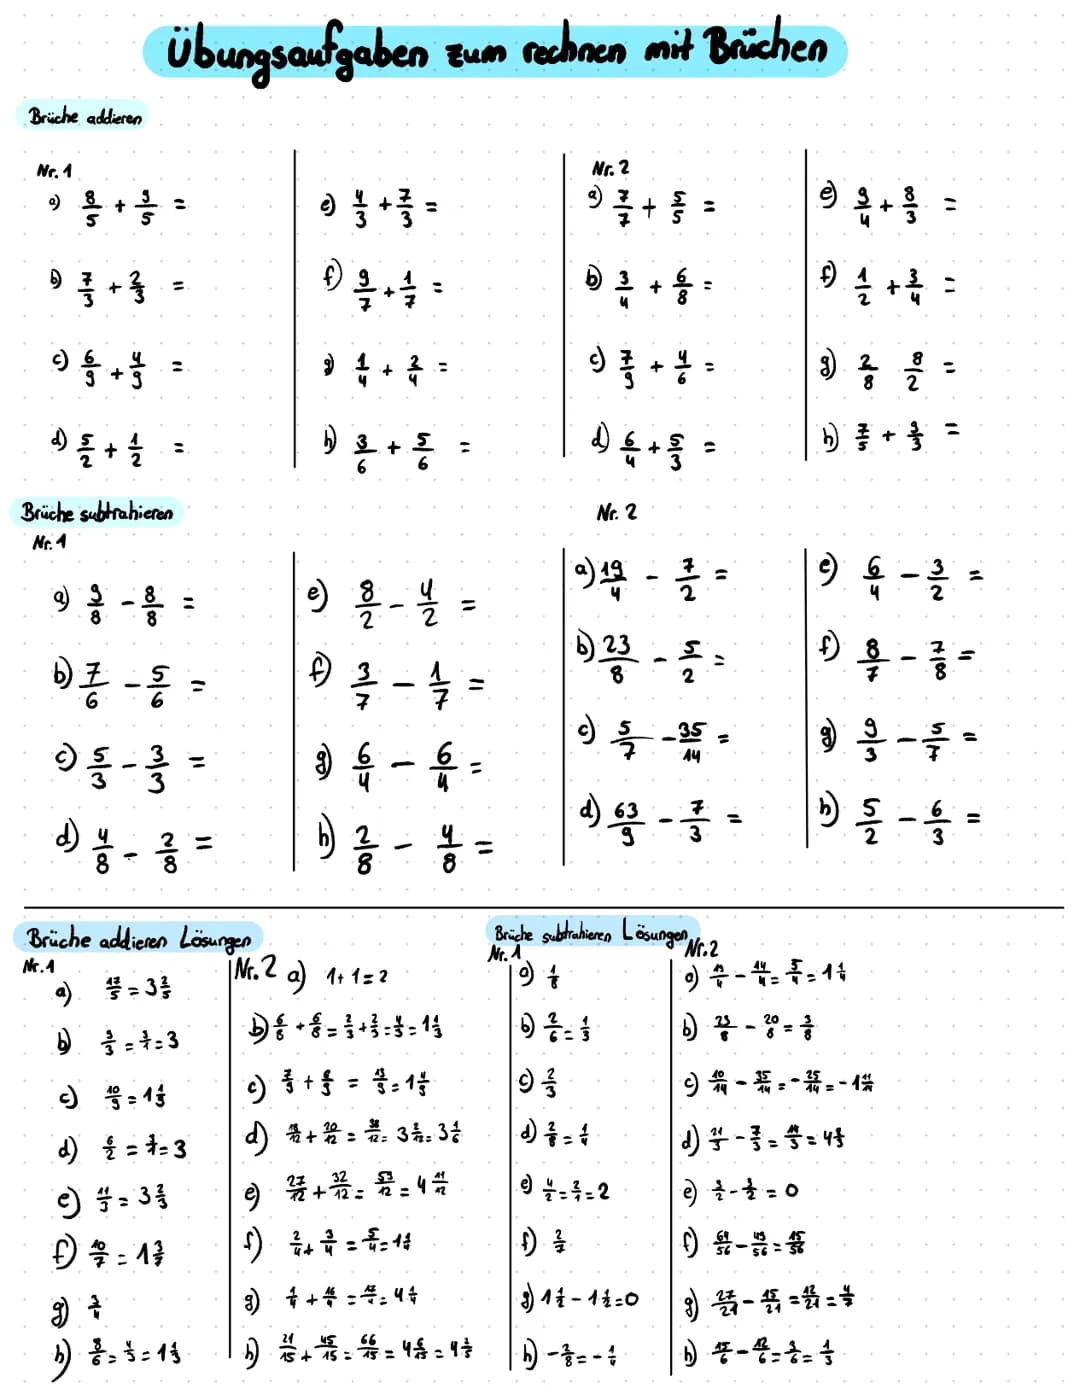 Übungsaufgaben zum rechnen mit Brüchen
Brüche addieren
Nr. 1
a) 8/5 + 9/5 =
b) 7/3 + 2/3 =
c) 6/9 + 4/9 =
d) 5/2 + 1/2 =
e) 4/3 + 7/3 =
f) 9/7 + 1/7 =
g) 1/4 + 2/4 =
h) 3/6 + 5/6 =
Nr. 2
a) 7/7 + 5/5 =
b) 3/4 + 6/8 =
c) 7/9 + 4/6 =
d) 6/4 + 5/3 =
e) 9/4 + 8/3 =
f) 1/2 + 3/4 =
g) 2/8 8/2 =
h) 7/5 + 9/3 =
Brüche subtrahieren
Nr. 1
a) 9/8 - 8/8 =
b) 7/6 - 5/6 =
c) 5/3 - 3/3 =
d) 4/8 - 2/8 =
e) 8/2 - 4/2 =
f) 3/7 - 1/7 =
g) 6/4 - 6/4 =
h) 2/8 - 4/8 =
Nr. 2
a) 19/4 - 7/2 =
b) 23/8 - 5/2 =
c) 5/7 - 35/14 =
d) 63/9 - 7/3 =
e) 6/4 - 3/2 =
f) 8/7 - 7/8 =
g) 9/3 - 5/7 =
h) 5/2 - 6/3 =
Brüche addieren Lösungen
Nr. 1
a) 17/5 = 3 2/5
b) 9/3 = 3/1 = 3
c) 10/9 = 1 1/9
d) 6/2 = 3/1 = 3
e) 11/3 = 3 2/3
f) 10/7 = 1 3/7
g) 3/4
h) 8/6 = 4/3 = 1 1/3
Nr. 2 a) 1 + 1 = 2
b) 6/8 + 6/8 = 2/3 + 2/3 = 4/3 = 1 1/3
c) 7/9 + 6/9 = 13/9 = 1 4/9
d) 18/12 + 20/12 = 38/12 = 3 2/12 = 3 1/6
e) 27/12 + 32/12 = 53/12 = 4 11/12
f) 2/4 + 3/4 = 5/4 = 1 1/4
g) 1/4 + 16/4 = 17/4 = 4 1/4
h) 21/15 + 45/15 = 66/15 = 4 6/15 = 4 2/5
Brüche subtrahieren Lösungen
Nr. 1
a) 1/8
b) 2/6 = 1/3
c) 2/3
d) 2/8 = 1/4
e) 4/2 = 2/1 = 2
f) 2/7
g) 1 1/2 - 1 1/2 = 0
h) - 2/8 = - 1/4
Nr. 2
a) 19/4 - 14/4 = 5/4 = 1 1/4
b) 23/8 - 20/8 = 3/8
c) 10/14 - 35/14 = - 25/14 = - 1 11/14
d) 21/3 - 7/3 = 14/3 = 4 2/3
e) 3/2 - 3/2 = 0
f) 64/56 - 49/56 = 15/56
g) 27/21 - 15/21 = 12/21 = 4/7
h) 15/6 - 12/6 = 3/6 = 1/3